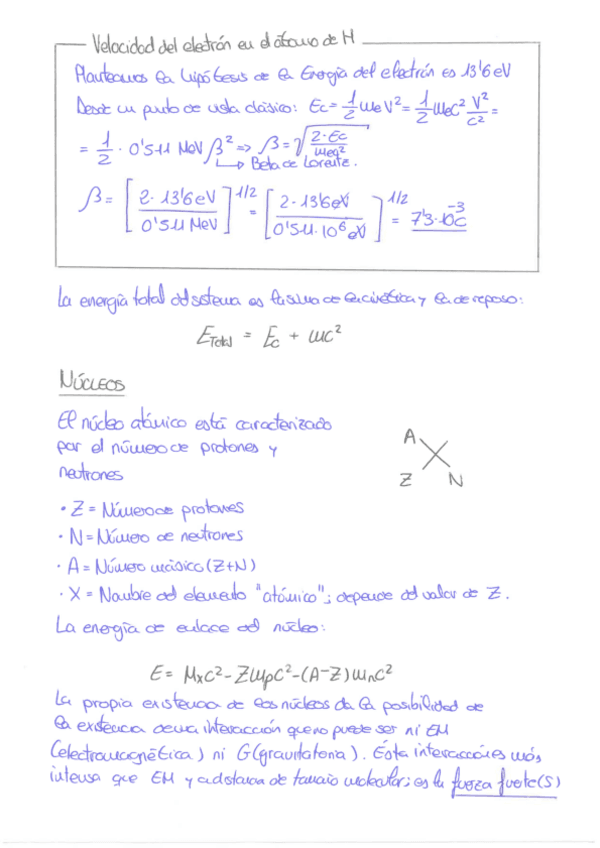 Velocidad del electrón en el átomo de H
Planteamos la hipótesis de la Energía del electrón es 13'6 eV
Desde un punto de vista clásico: Ec = 1/2 meV² = 1/2 mec² V²/c² =
= 1/2 · 0'511 MeV β² => β = √(2·Ec/mec²)
↳ Beta de Lorentz.
β = [2·13'6 eV / 0'511 MeV]^1/2 = [2·13'6 eV / 0'511·10⁶ eV]^1/2 = 7'3·10⁻³c
La energía total del sistema es la suma de la cinética y la de reposo:
ETotal = Ec + mc²
NÚCLEOS
El núcleo atómico está caracterizado
por el número de protones y
neutrones
A
X
Z N
· Z = Número de protones
· N = Número de neutrones
· A = Número másico (Z+N)
· X = Nombre del elemento "atómico"; depende del valor de Z.
La energía de enlace del núcleo:
E = Mxc² - Zmpc² - (A-Z)mnc²
La propia existencia de los núcleos da la posibilidad de
la existencia de una interacción que no puede ser ni EM
(electromagnética) ni G (gravitatoria). Ésta interacción es más
intensa que EM y a distancia de tamaño molecular; es la fuerza fuerte (S)